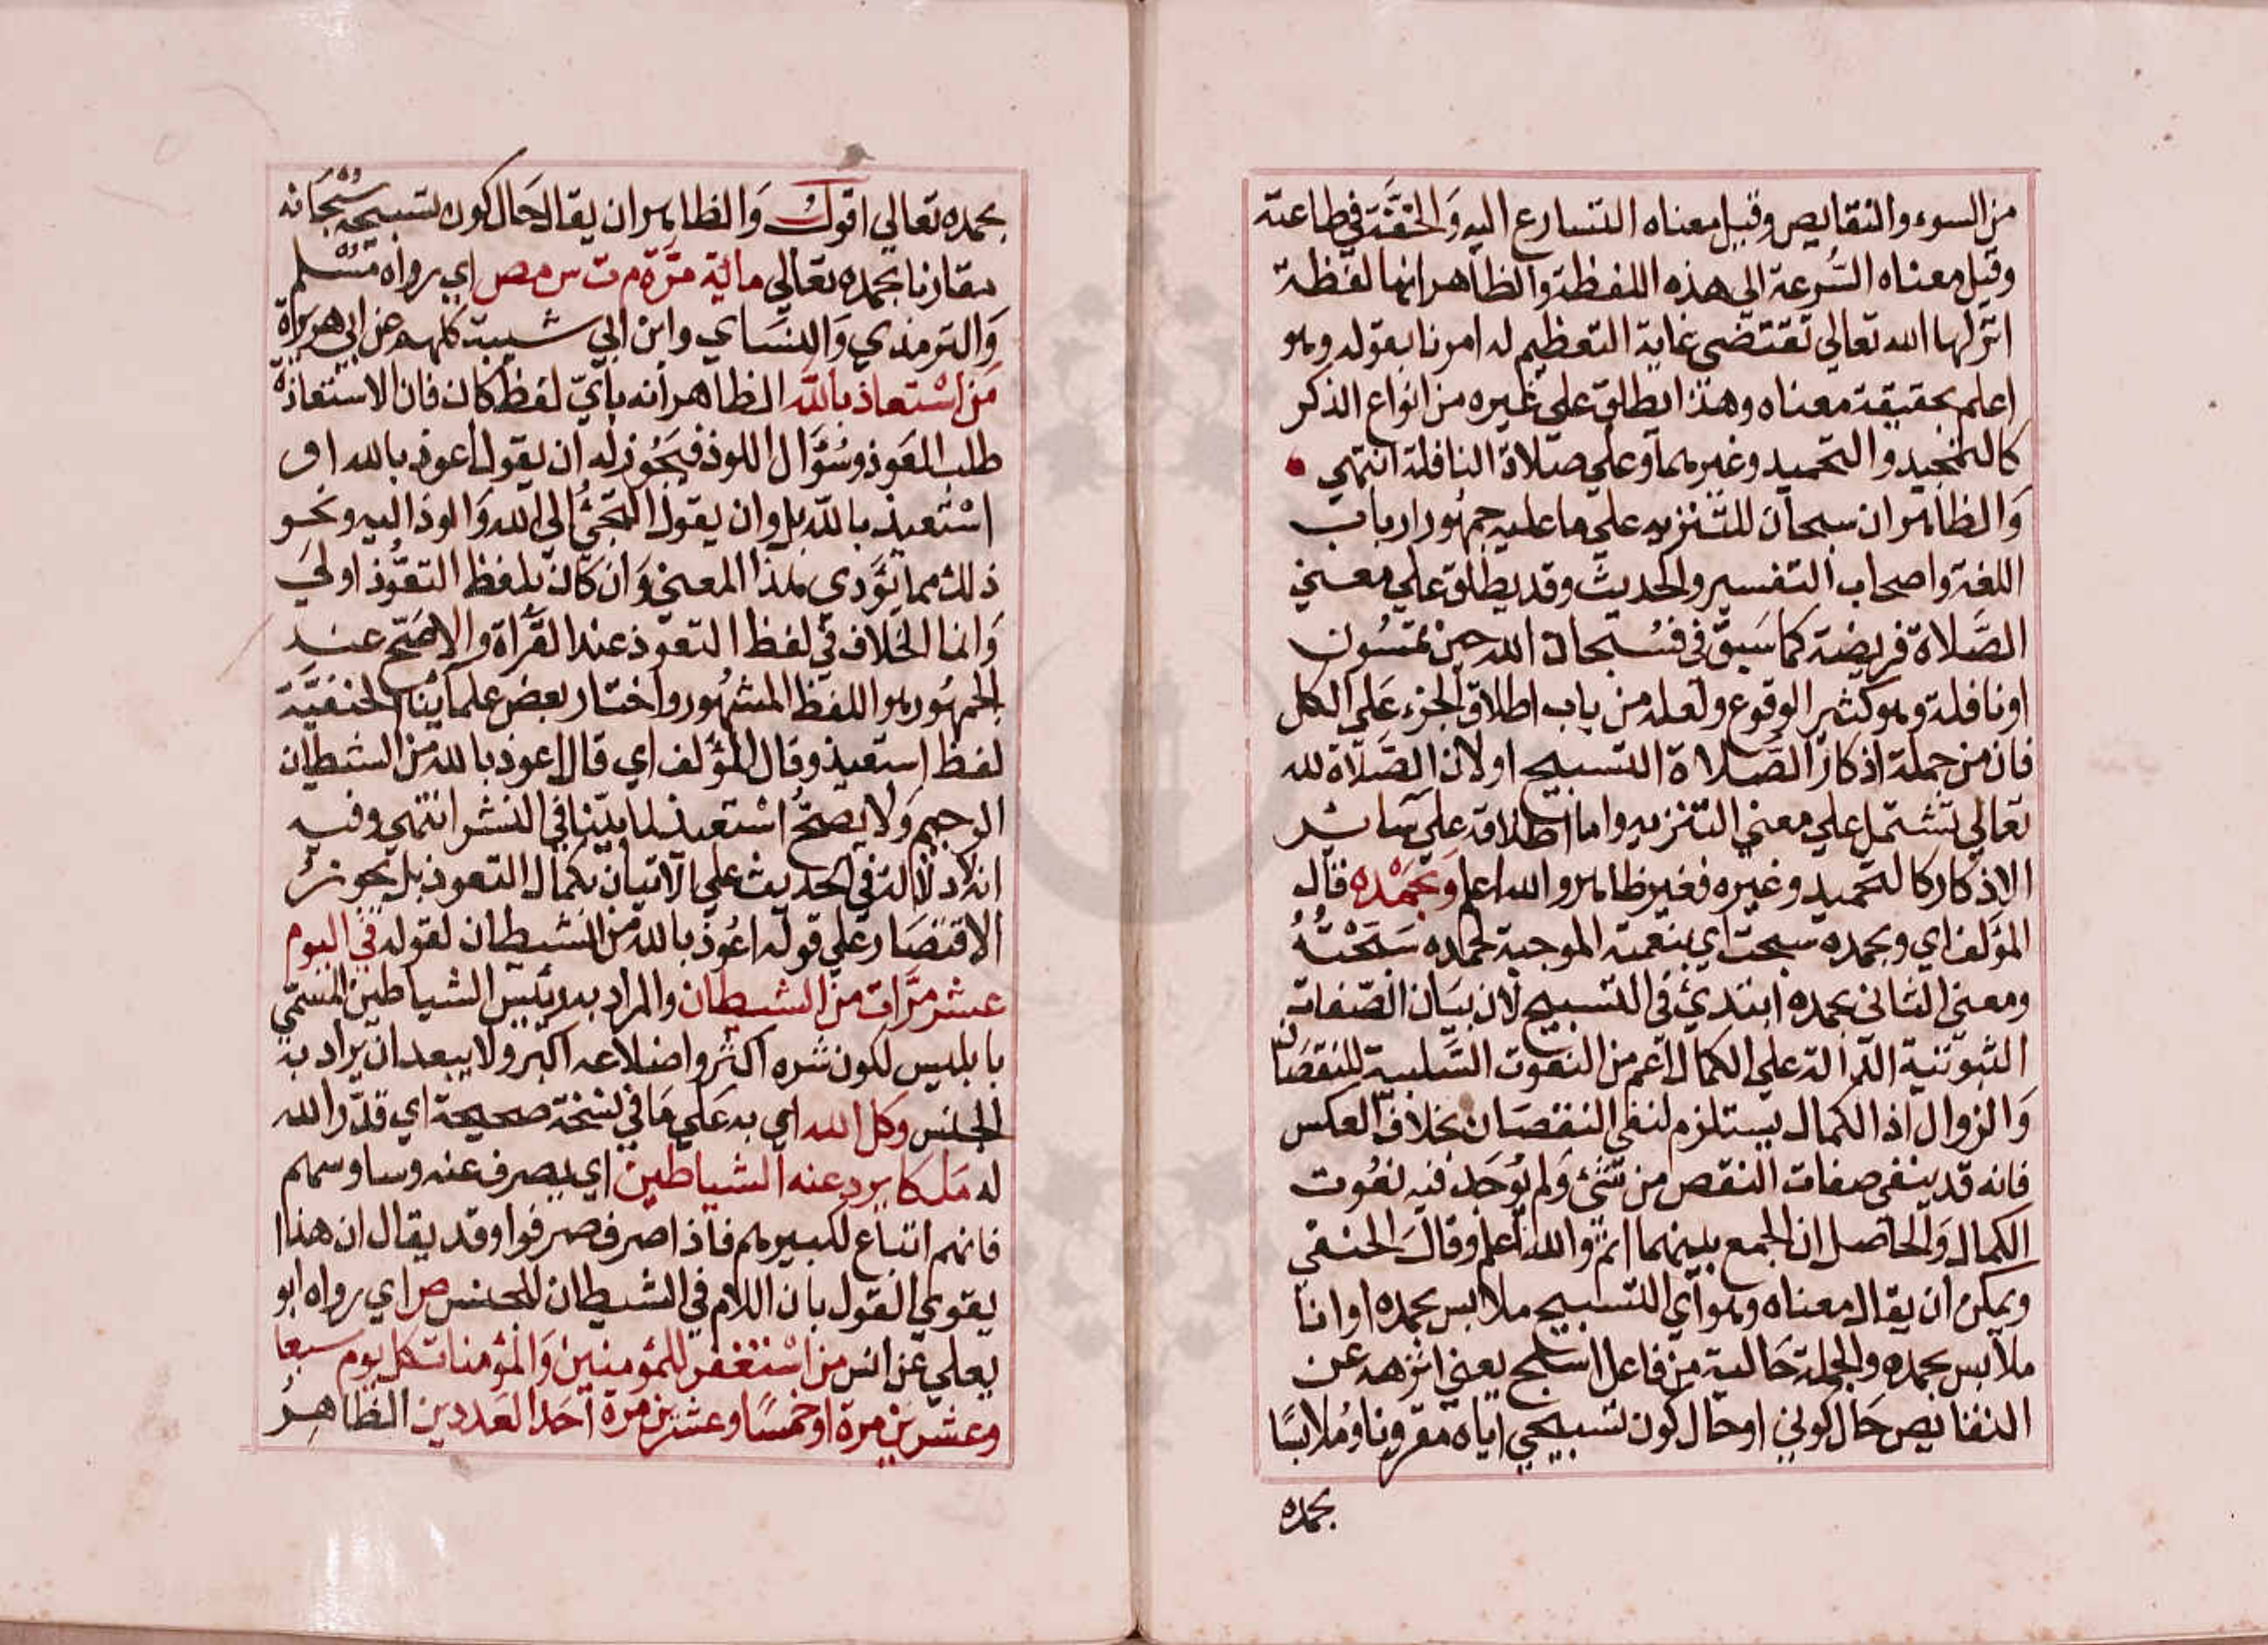 من السوء والنقايص وقيل معناه التسارع اليه والخفة في طاعته
وقيل معناه السرعة الي هذه اللفظة والظاهر انها لفظة
انزلها الله تعالي تقتضي غاية التعظيم له امرنا بقوله وهو
اعلم بحقيقة معناه وهذا يطلق علي غيره من انواع الذكر
كالتمجيد والتحميد وغيرهما وعلي صلاة النافلة انتهي
وَالظاهر ان سبحان للتنزيه علي ما عليه جمهور ارباب
اللغة واصحاب التفسير والحديث وقد يطلق علي معني
الصَّلاة فريضة كما سَبق في فسُبحان الله حين تمسُون
او نافلة وهو كثير الوقوع ولعله من باب اطلاق الجزء عَلي الكل
فان من جملة اذكار الصَّلاة التسبيح او لان الصَّلاة لله
تعالي تشتمل علي معني التنزيه واما اطلاقه علي سَائر
الاذكار كالتحميد وغيره فغير ظاهر والله اعلم وَبحَمْده قال
المؤلف اي وبحمده سبحت اي بنعمته الموجبة لحمده سَبَّحْتُهُ
ومعني الثاني بحمده ابتدئ في التسبيح لان بيَان الصّفات
الثبوتية الدّالة علي الكمال اعم من النعوت السَّلبية للنقصَان
وَالزوال اذ الكمال يستلزم لنفي النقصَان بخلاف العكس
فانه قد ينفي صفات النقص من شئ وَلم يُوجَد فيه نعُوت
الكمال وَالحاصل ان الجمع بينهما اتم والله اعلم وقالَ الحنفي
ويمكن ان يقال معناه وهو اي التسبيح ملابس بحمده او انا
ملابس بحمده والجملة حَالية من فاعل اسبح يعني انزهه عن
النقايص حَال كوني او حال كون تسبيحي اياه مقرونا ومُلابسًا
بحمده
بحمده تعالي اقول وَالظاهر ان يقال حَال كون تسبيحه سُبحَانه
مقارنا بحمده تعالي ماية مرَّة م ت س مص اي رواه مُسْلم
وَالترمذي وَالنسَاي وابن ابي شيبة كلهم عن ابي هريرة
مَن اسْتعاذ بالله الظاهر انه بايّ لفظ كان فان الاستعاذة
طلب العَوذ وسُؤَال اللوذ فيَجُوز له ان يقول اعوذ بالله او
اسْتعيذ بالله بل وان يقول التجئُ الي الله وَالوذ اليه ونحو
ذلك مما يؤدي هذا المعني وَان كان بلفظ التعوُّذ اولي
وَانما الخلاف في لفظ التعوذ عند القرَاة والاصَح عند
الجمهُور هو اللفظ المشهُور واختار بعض علماينا الحنفيَّة
لفظ استعيذ وقال المؤلف اي قال اعوذ بالله من الشيطان
الرجيم وَلا يصحُّ اسْتعيذ لما بيّنا في النشر انتهي وفيه
انه لا دلالة في الحديث علي الاتيان بكمال التعوذ بل يجوزُ
الاقتصَار علي قوله اعُوذ بالله من الشيطان لقوله في اليوم
عشر مرَّات من الشيطان والمراد به رئيس الشياطين المسَمّي
بابليس لكون شره اكثر واضلاعه اكبر ولا يبعد ان يراد به
الجنس وكل الله اي به عَلي مَا في نسْخة صحيحة اي قدّر الله
له مَلكا يرد عنه الشياطين اي يصرف عنه وساوسهم
فانهم اتباع لكبيرهم فاذا صرف صرفوا وقد يقال ان هذا
يقوي القول بان اللام في الشيطان للجنس ص اي رواه ابو
يعلي عن انس من اسْتغفر للمؤمنين وَالمؤمنات كل يوم سبعا
وعشرين مرة او خمسًا وعشرين مرة احَد العَددين الظاهِرُ